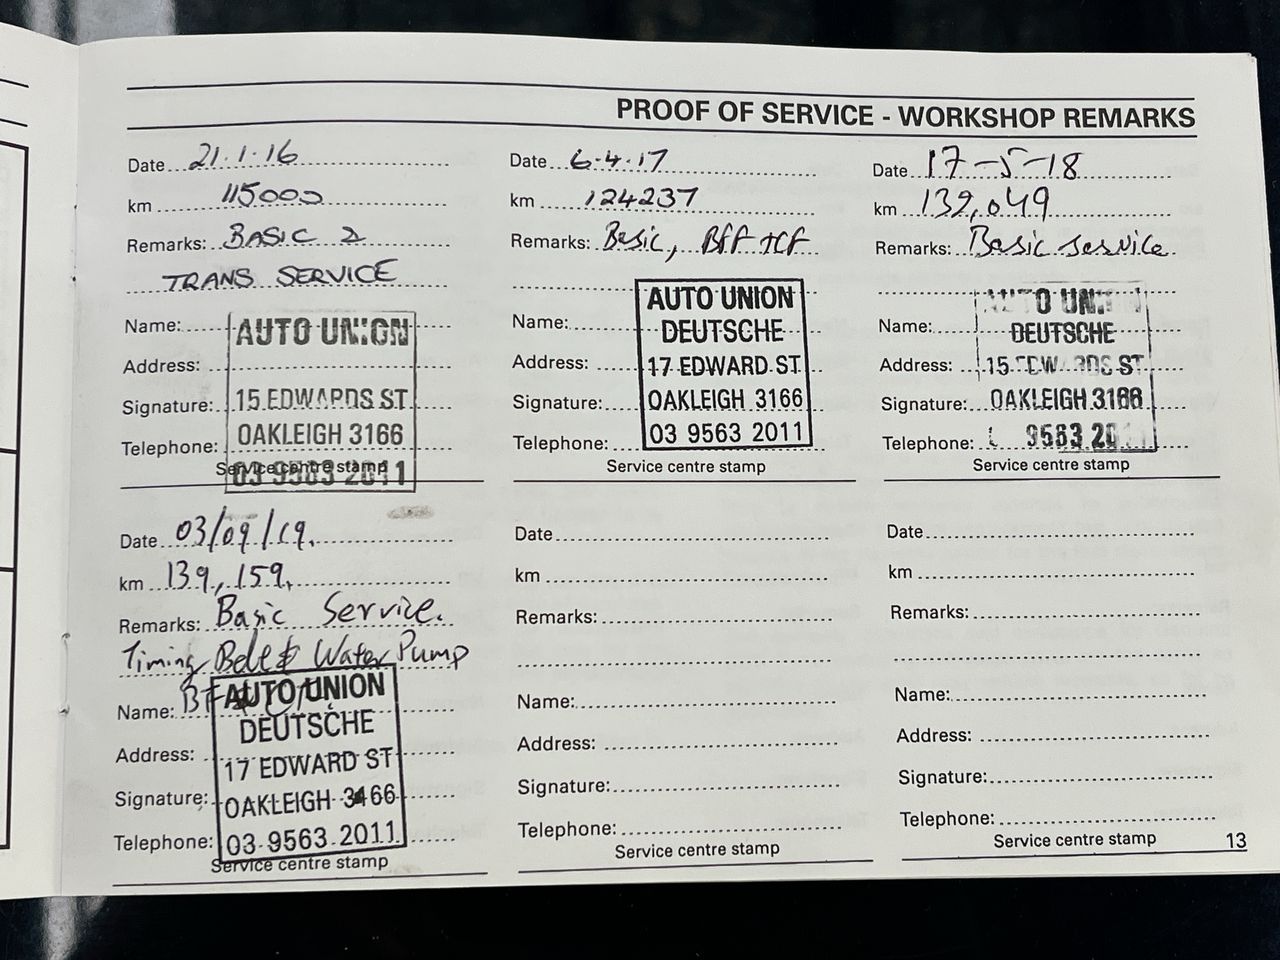 PROOF OF SERVICE - WORKSHOP REMARKS
Date 21.1.16
km 115000
Remarks: BASIC 2
TRANS SERVICE
Name:
Address:
Signature:
Telephone:
AUTO UNION
15 EDWARDS ST
OAKLEIGH 3166
03 9563 2011
Service centre stamp
Date 6.4.17
km 124237
Remarks: Basic, BFF + CF
Name:
Address:
Signature:
Telephone:
AUTO UNION
DEUTSCHE
17 EDWARD ST
OAKLEIGH 3166
03 9563 2011
Service centre stamp
Date 17-5-18
km 132,049
Remarks: Basic service
Name:
Address:
Signature:
Telephone:
AUTO UNION
DEUTSCHE
15 EDWARDS ST
OAKLEIGH 3166
9563 20
Service centre stamp
Date 03/09/19.
km 139,159.
Remarks: Basic Service.
Timing Belt & Water Pump
Name:
Address:
Signature:
Telephone:
AUTO UNION
DEUTSCHE
17 EDWARD ST
OAKLEIGH 3166
03 9563 2011
Service centre stamp
Date
km
Remarks:
Name:
Address:
Signature:
Telephone:
Service centre stamp
Date
km
Remarks:
Name:
Address:
Signature:
Telephone:
Service centre stamp
13